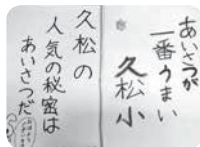 あいさつが
一番うまい
久松小
久松の
人気の秘密は
あいさつだ